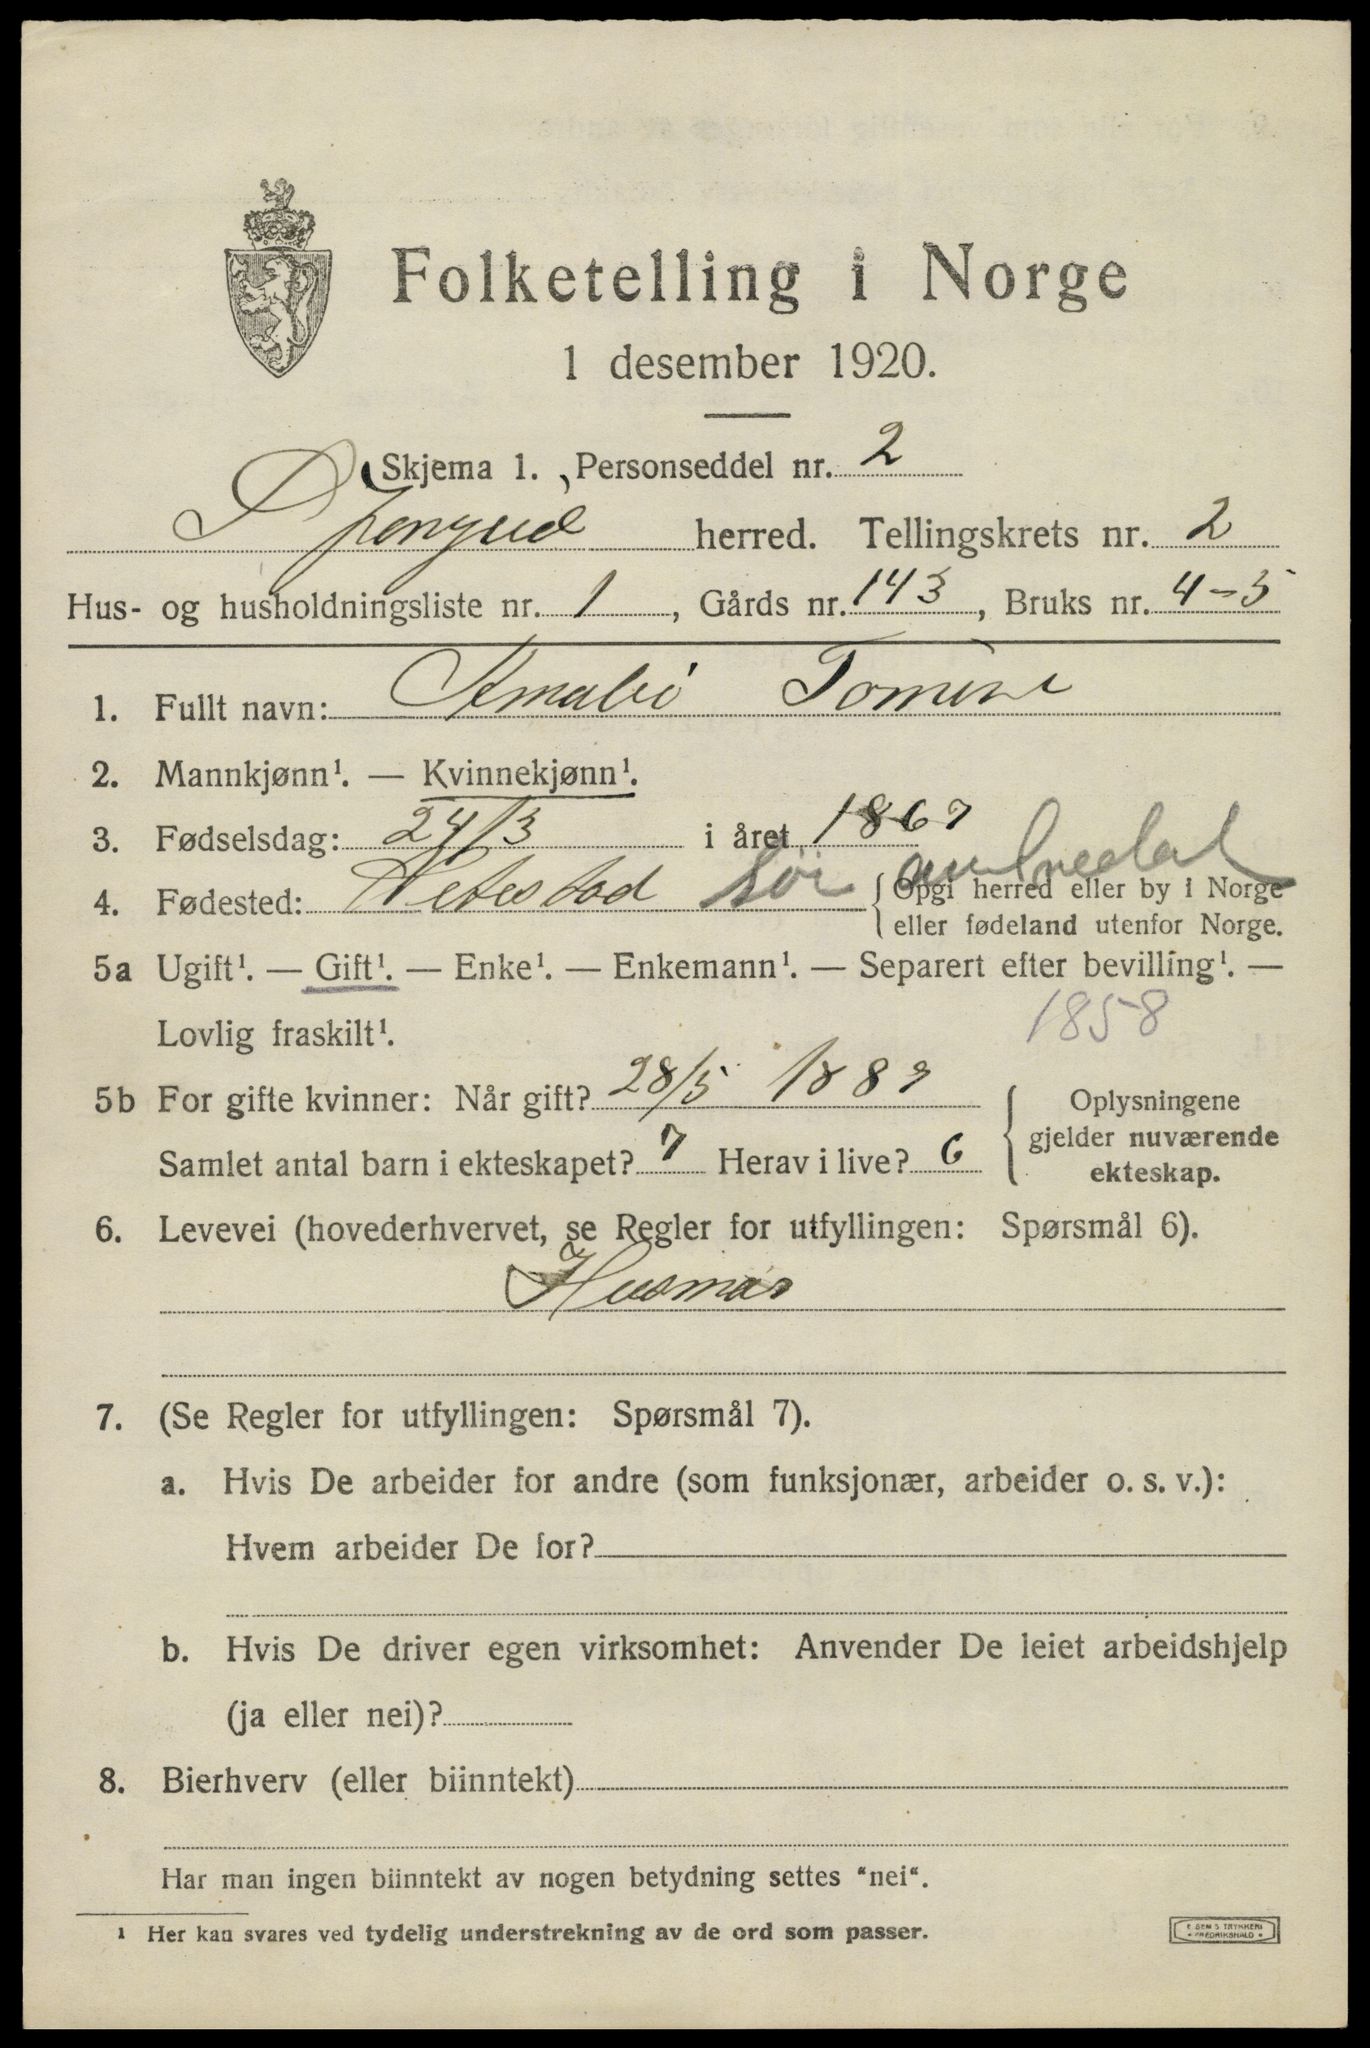 Folketelling i Norge
1 desember 1920.
Skjema 1. Personseddel nr. 2
herred. Tellingskrets nr. 2
Hus- og husholdningsliste nr. 1, Gårds nr. 143, Bruks nr. 4-5
1. Fullt navn: Tomine
2. Mannkjønn¹. — Kvinnekjønn¹.
3. Fødselsdag: 24/3 i året 1867
4. Fødested: Sør audnedal {Opgi herred eller by i Norge
eller fødeland utenfor Norge.
5a Ugift¹. — Gift¹. — Enke¹. — Enkemann¹. — Separert efter bevilling¹. —
Lovlig fraskilt¹.
1858
5b For gifte kvinner: Når gift? 28/5 1889
Samlet antal barn i ekteskapet? 7 Herav i live? 6
{Oplysningene
gjelder nuværende
ekteskap.
6. Levevei (hovederhvervet, se Regler for utfyllingen: Spørsmål 6).
Husmor
7. (Se Regler for utfyllingen: Spørsmål 7).
a. Hvis De arbeider for andre (som funksjonær, arbeider o. s. v.):
Hvem arbeider De for?
b. Hvis De driver egen virksomhet: Anvender De leiet arbeidshjelp
(ja eller nei)?
8. Bierhverv (eller biinntekt)
Har man ingen biinntekt av nogen betydning settes "nei".
¹ Her kan svares ved tydelig understrekning av de ord som passer.
E. SEM'S TRYKKERI
• FREDRIKSHALD •